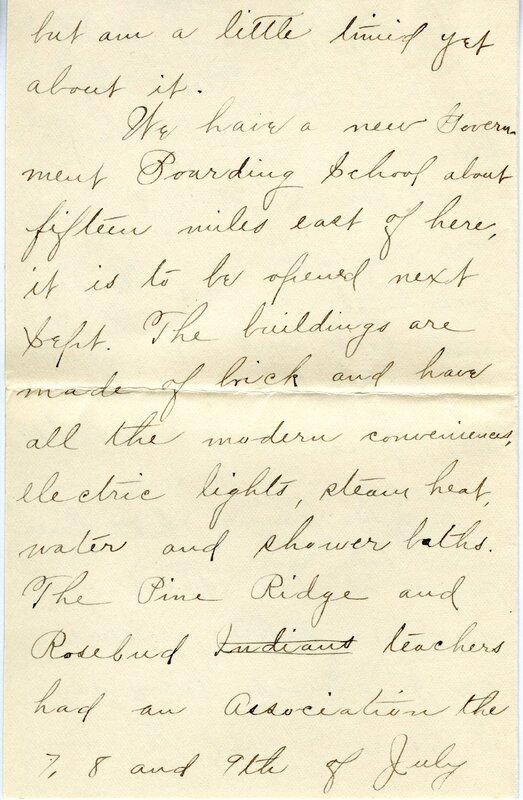 but am a little timid yet
about it.
We have a new Govern-
ment Boarding School about
fifteen miles east of here,
it is to be opened next
Sept. The buildings are
made of brick and have
all the modern conveniences,
electric lights, steam heat,
water and shower baths.
The Pine Ridge and
Rosebud Indians teachers
had an Association the
7, 8 and 9th of July